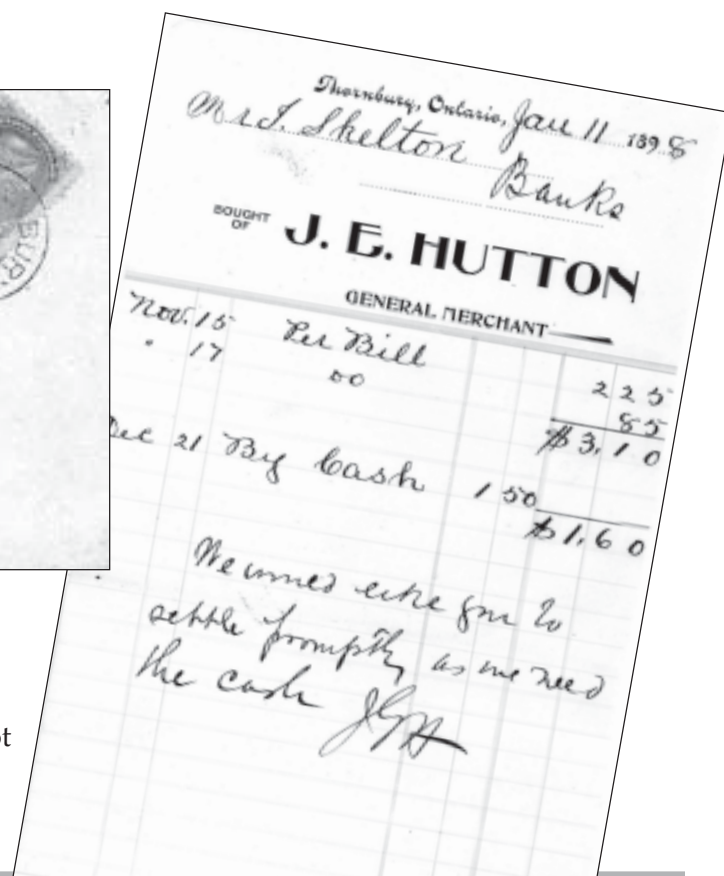 BUR
Thornbury, Ontario, Jan 11 1898
Mr J. Skelton
Banks
BOUGHT
OF
J. E. HUTTON
GENERAL MERCHANT
Nov. 15 Per Bill 2 25
" 17 do 85
$3.10
Dec 21 By Cash 1 50
$1.60
We would like you to
settle promptly as we need
the cash JEH